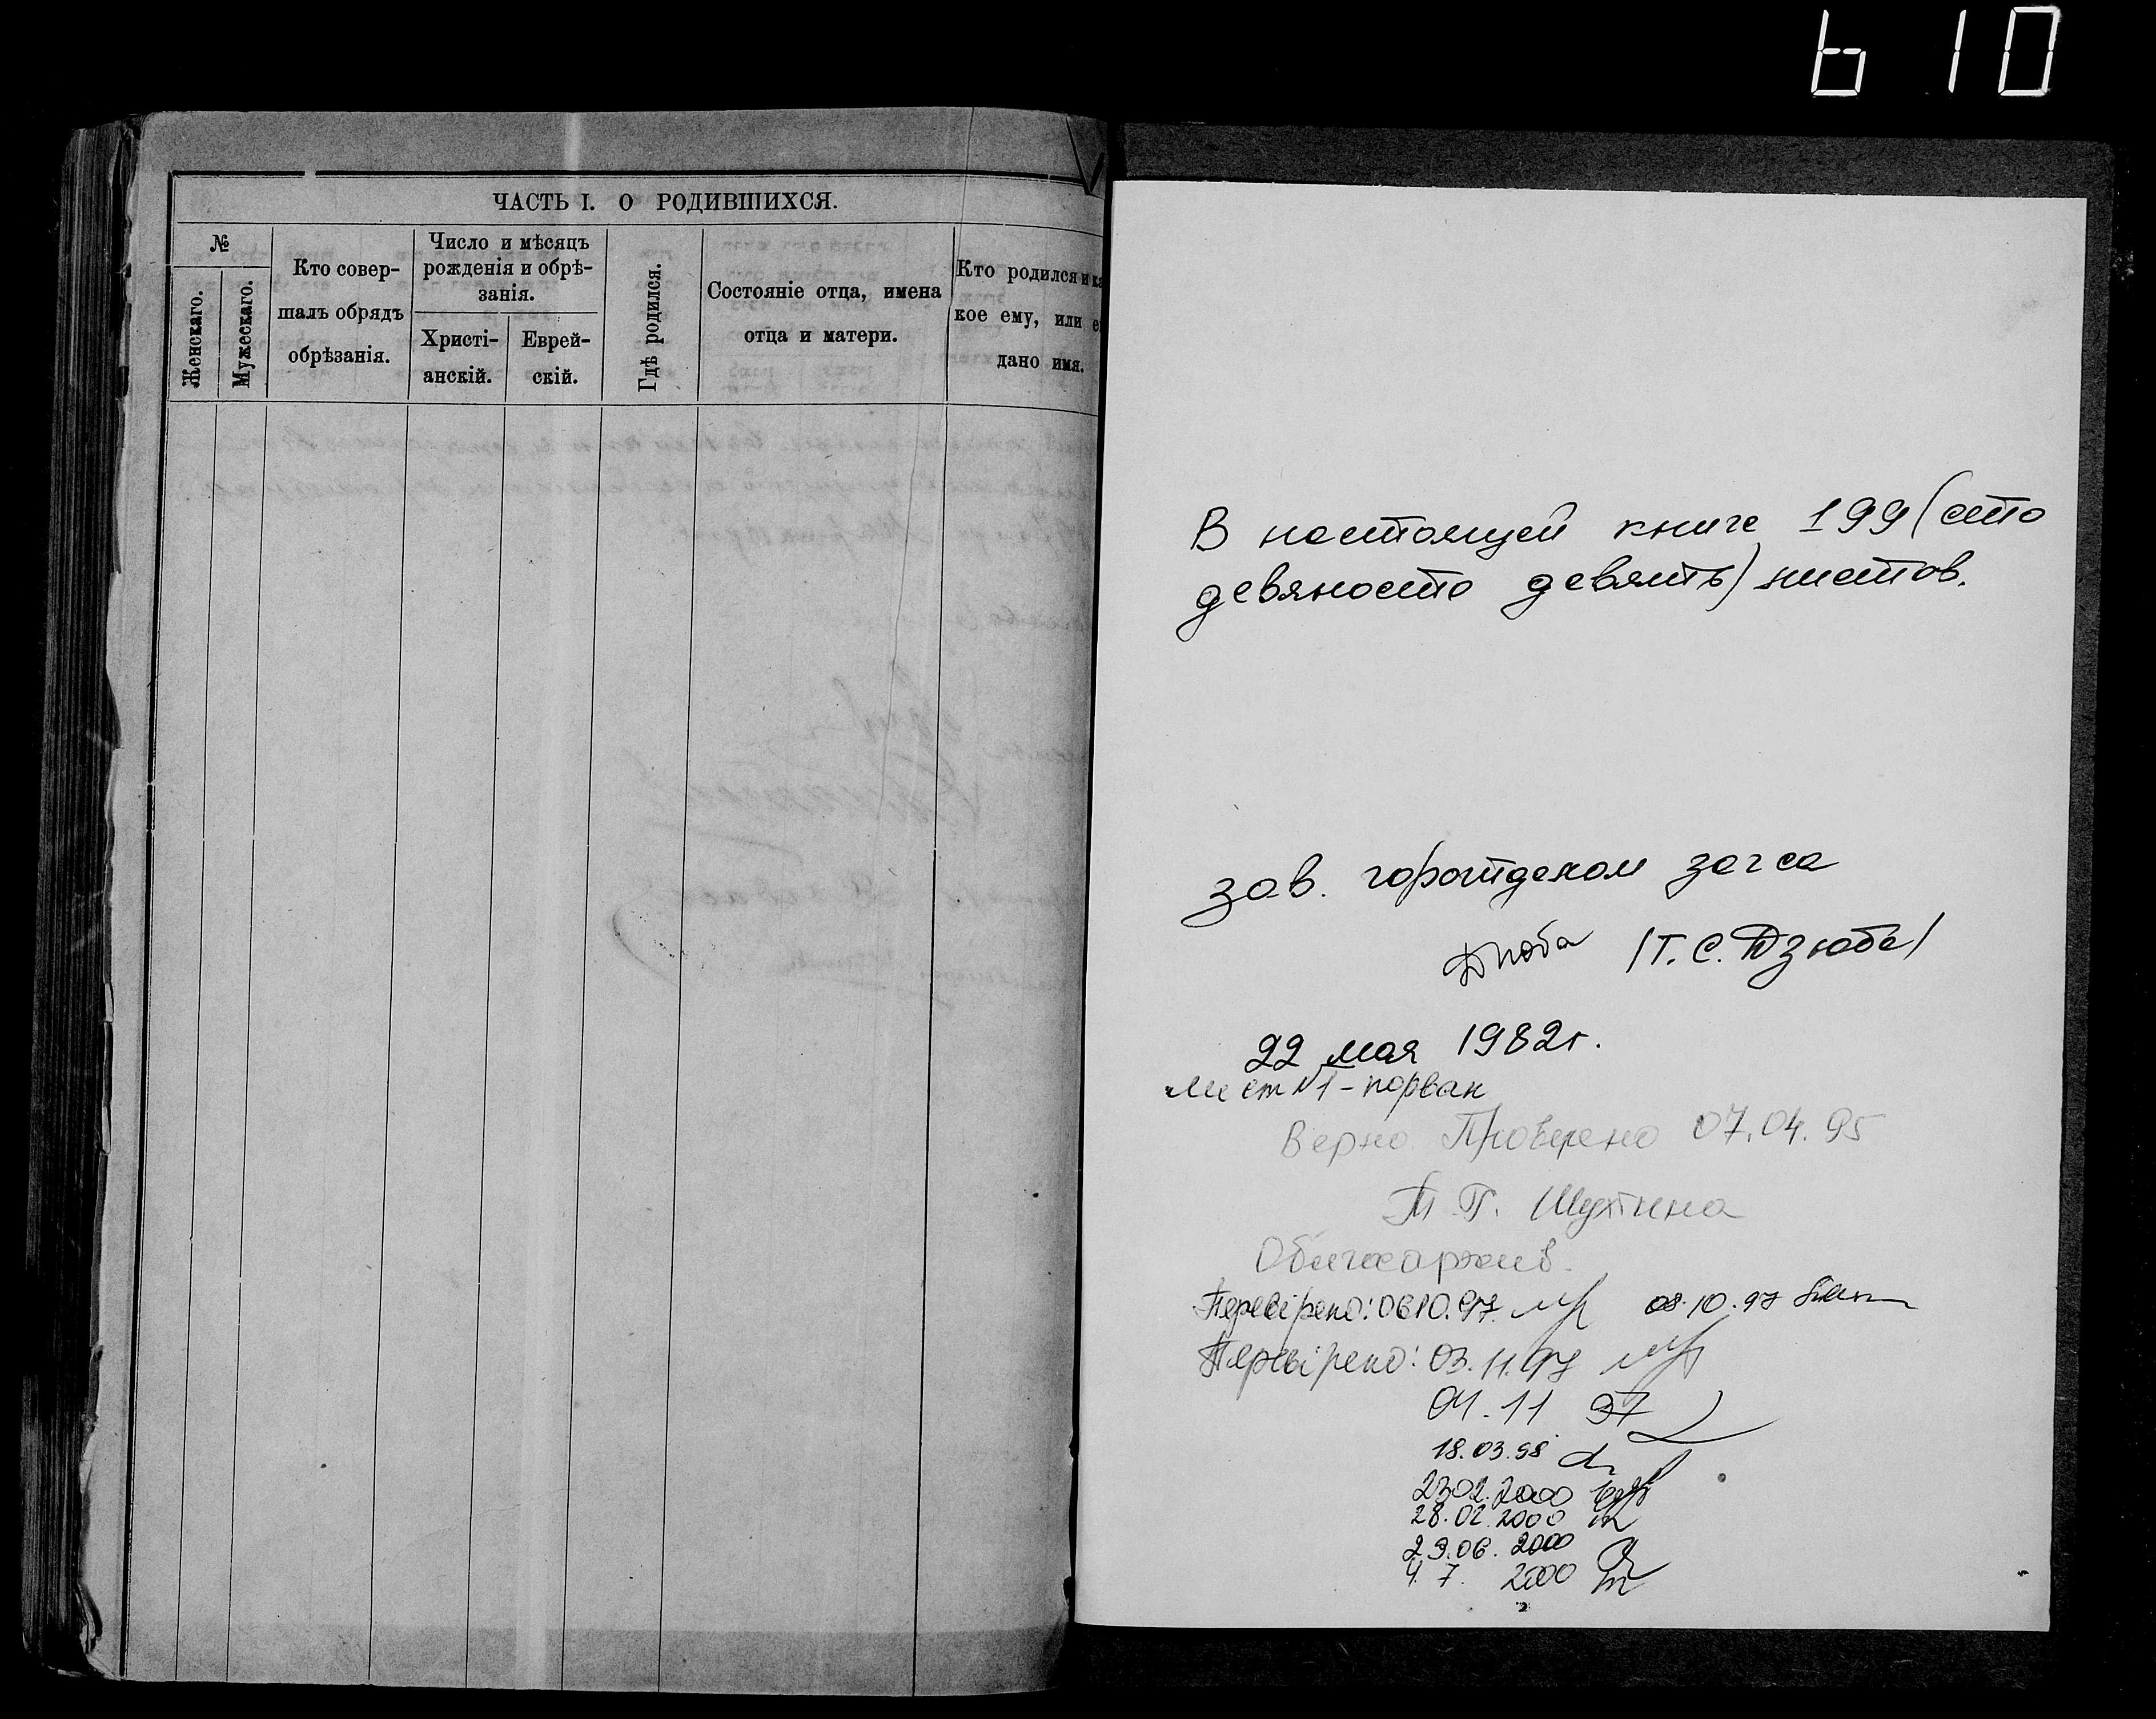 610
ЧАСТЬ I. О РОДИВШИХСЯ.
№
Женскаго.
Мужескаго.
Кто совер-
шалъ обрядъ
обрѣзанія.
Число и мѣсяцъ
рожденія и обрѣ-
занія.
Христі-
анскій.
Еврей-
скій.
Гдѣ родился.
Состояніе отца, имена
отца и матери.
Кто родился и ка
кое ему, или е
дано имя.
В настоящей книге 199 (сто
девяносто девять) листов.
Зав. горотделом загса
(Т. С. Дзюба)
22 мая 1982г.
Лист №1 - порван
Верно. Проверено 07.04.95
Облгосархив.
Перевірено: 06.10.97. 08.10.97
Перевірено: 03.11.97
04.11 97
18.03.98
23.02.2000
28.02.2000
29.06.2000
4.7. 2000